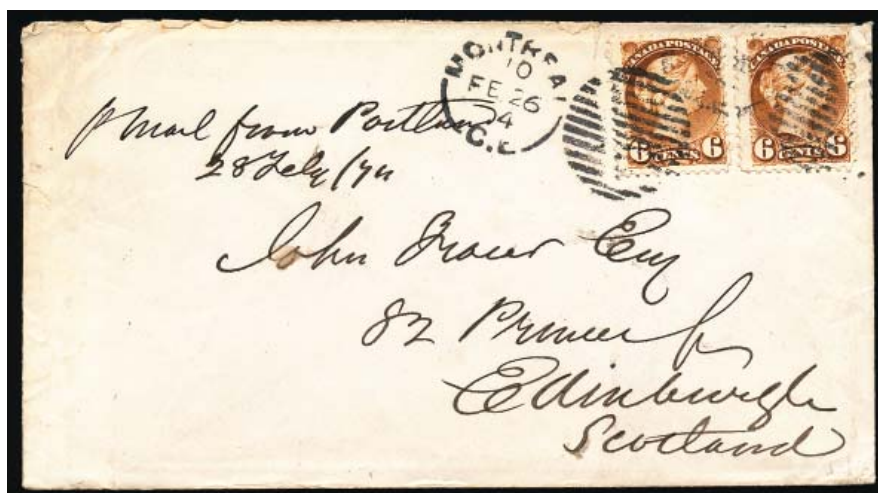 MONTREAL
10
FE 26
4
C.E
CANADA POSTAGE
CANADA POSTAGE
6 CENTS 6
6 CENTS 6
p Mail from Portland
28 Feby /74
John Fraser Esq
82 Princes St
Edinburgh
Scotland